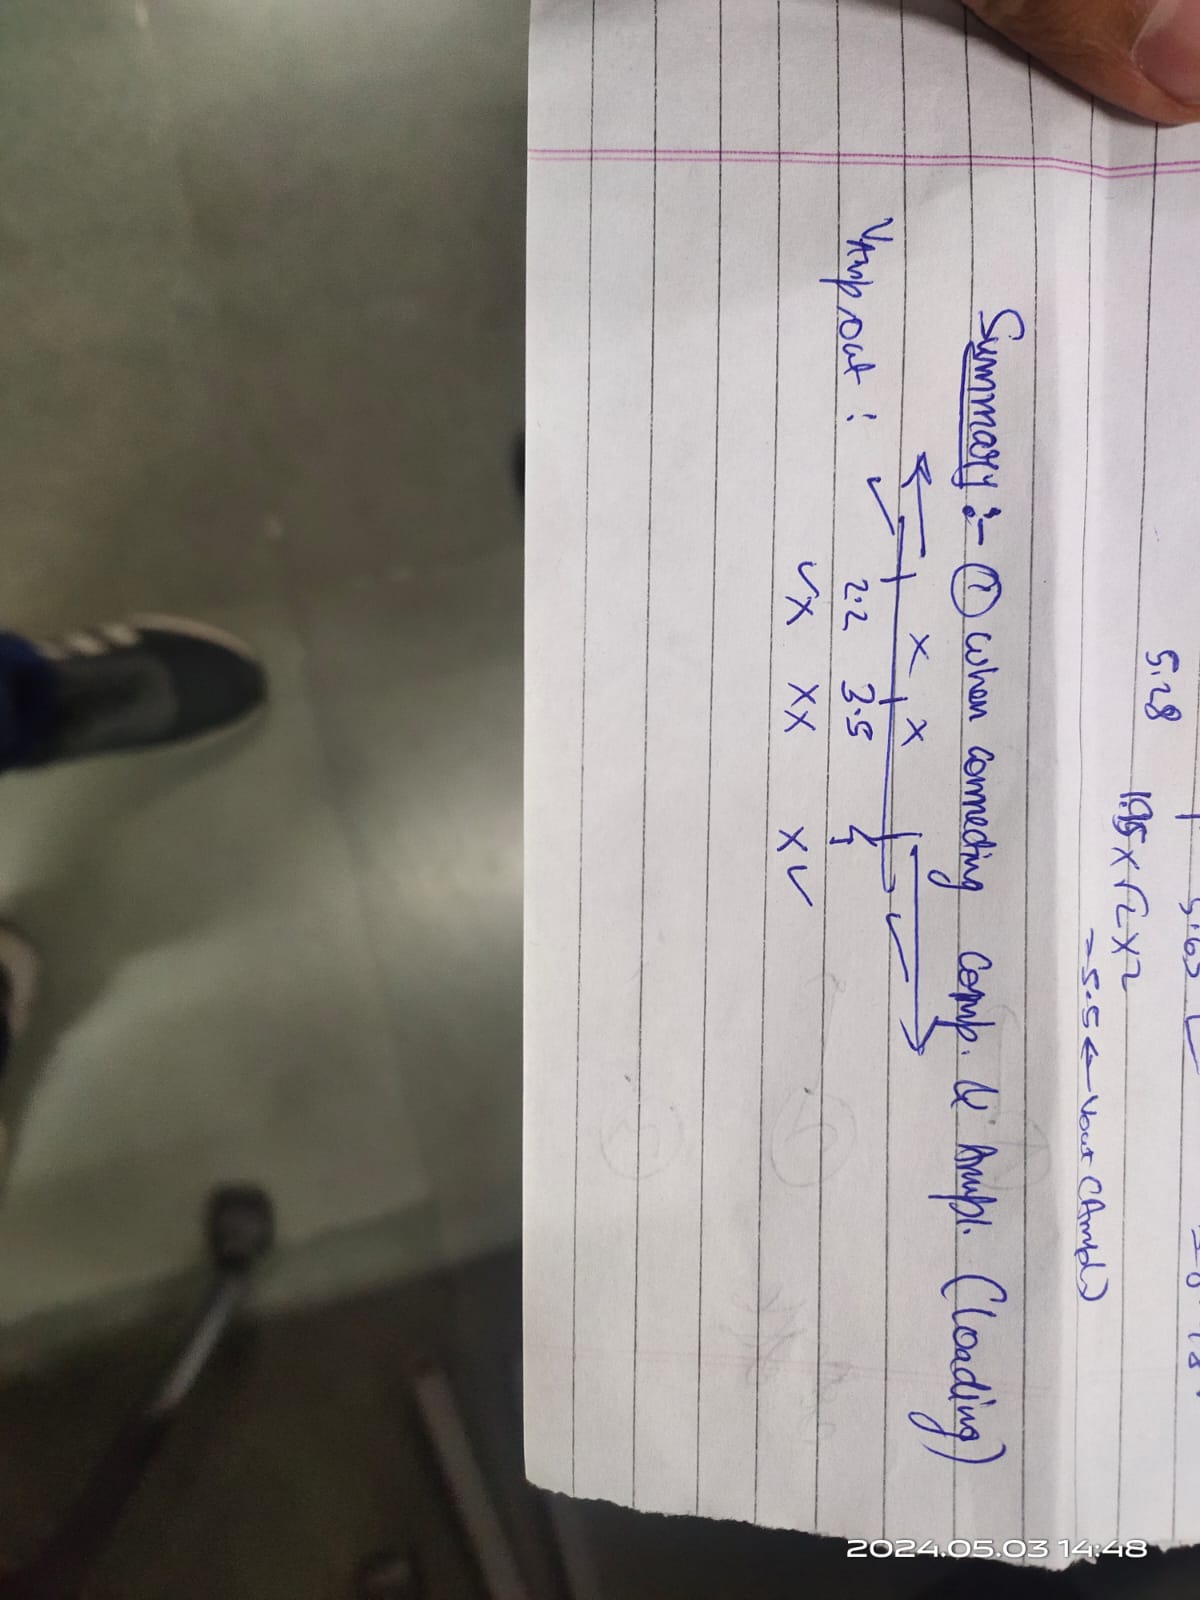 5.28
1.95 x √2 x 2
= 5.5 ← Vout (Ampl)
Summary :- ① When connecting Comp. & Ampl. (loading)
← x x →
✓ ✓
VAmp, out : 2.2 3.5 4
✓x xx x✓
2024.05.03 14:48